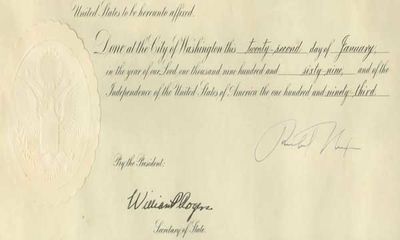 United States to be hereunto affixed.
Done at the City of Washington this twenty-second day of January,
in the year of our Lord one thousand nine hundred and sixty-nine, and of the
Independence of the United States of America the one hundred and ninety-third.
Richard Nixon
By the President:
William P. Rogers
Secretary of State.